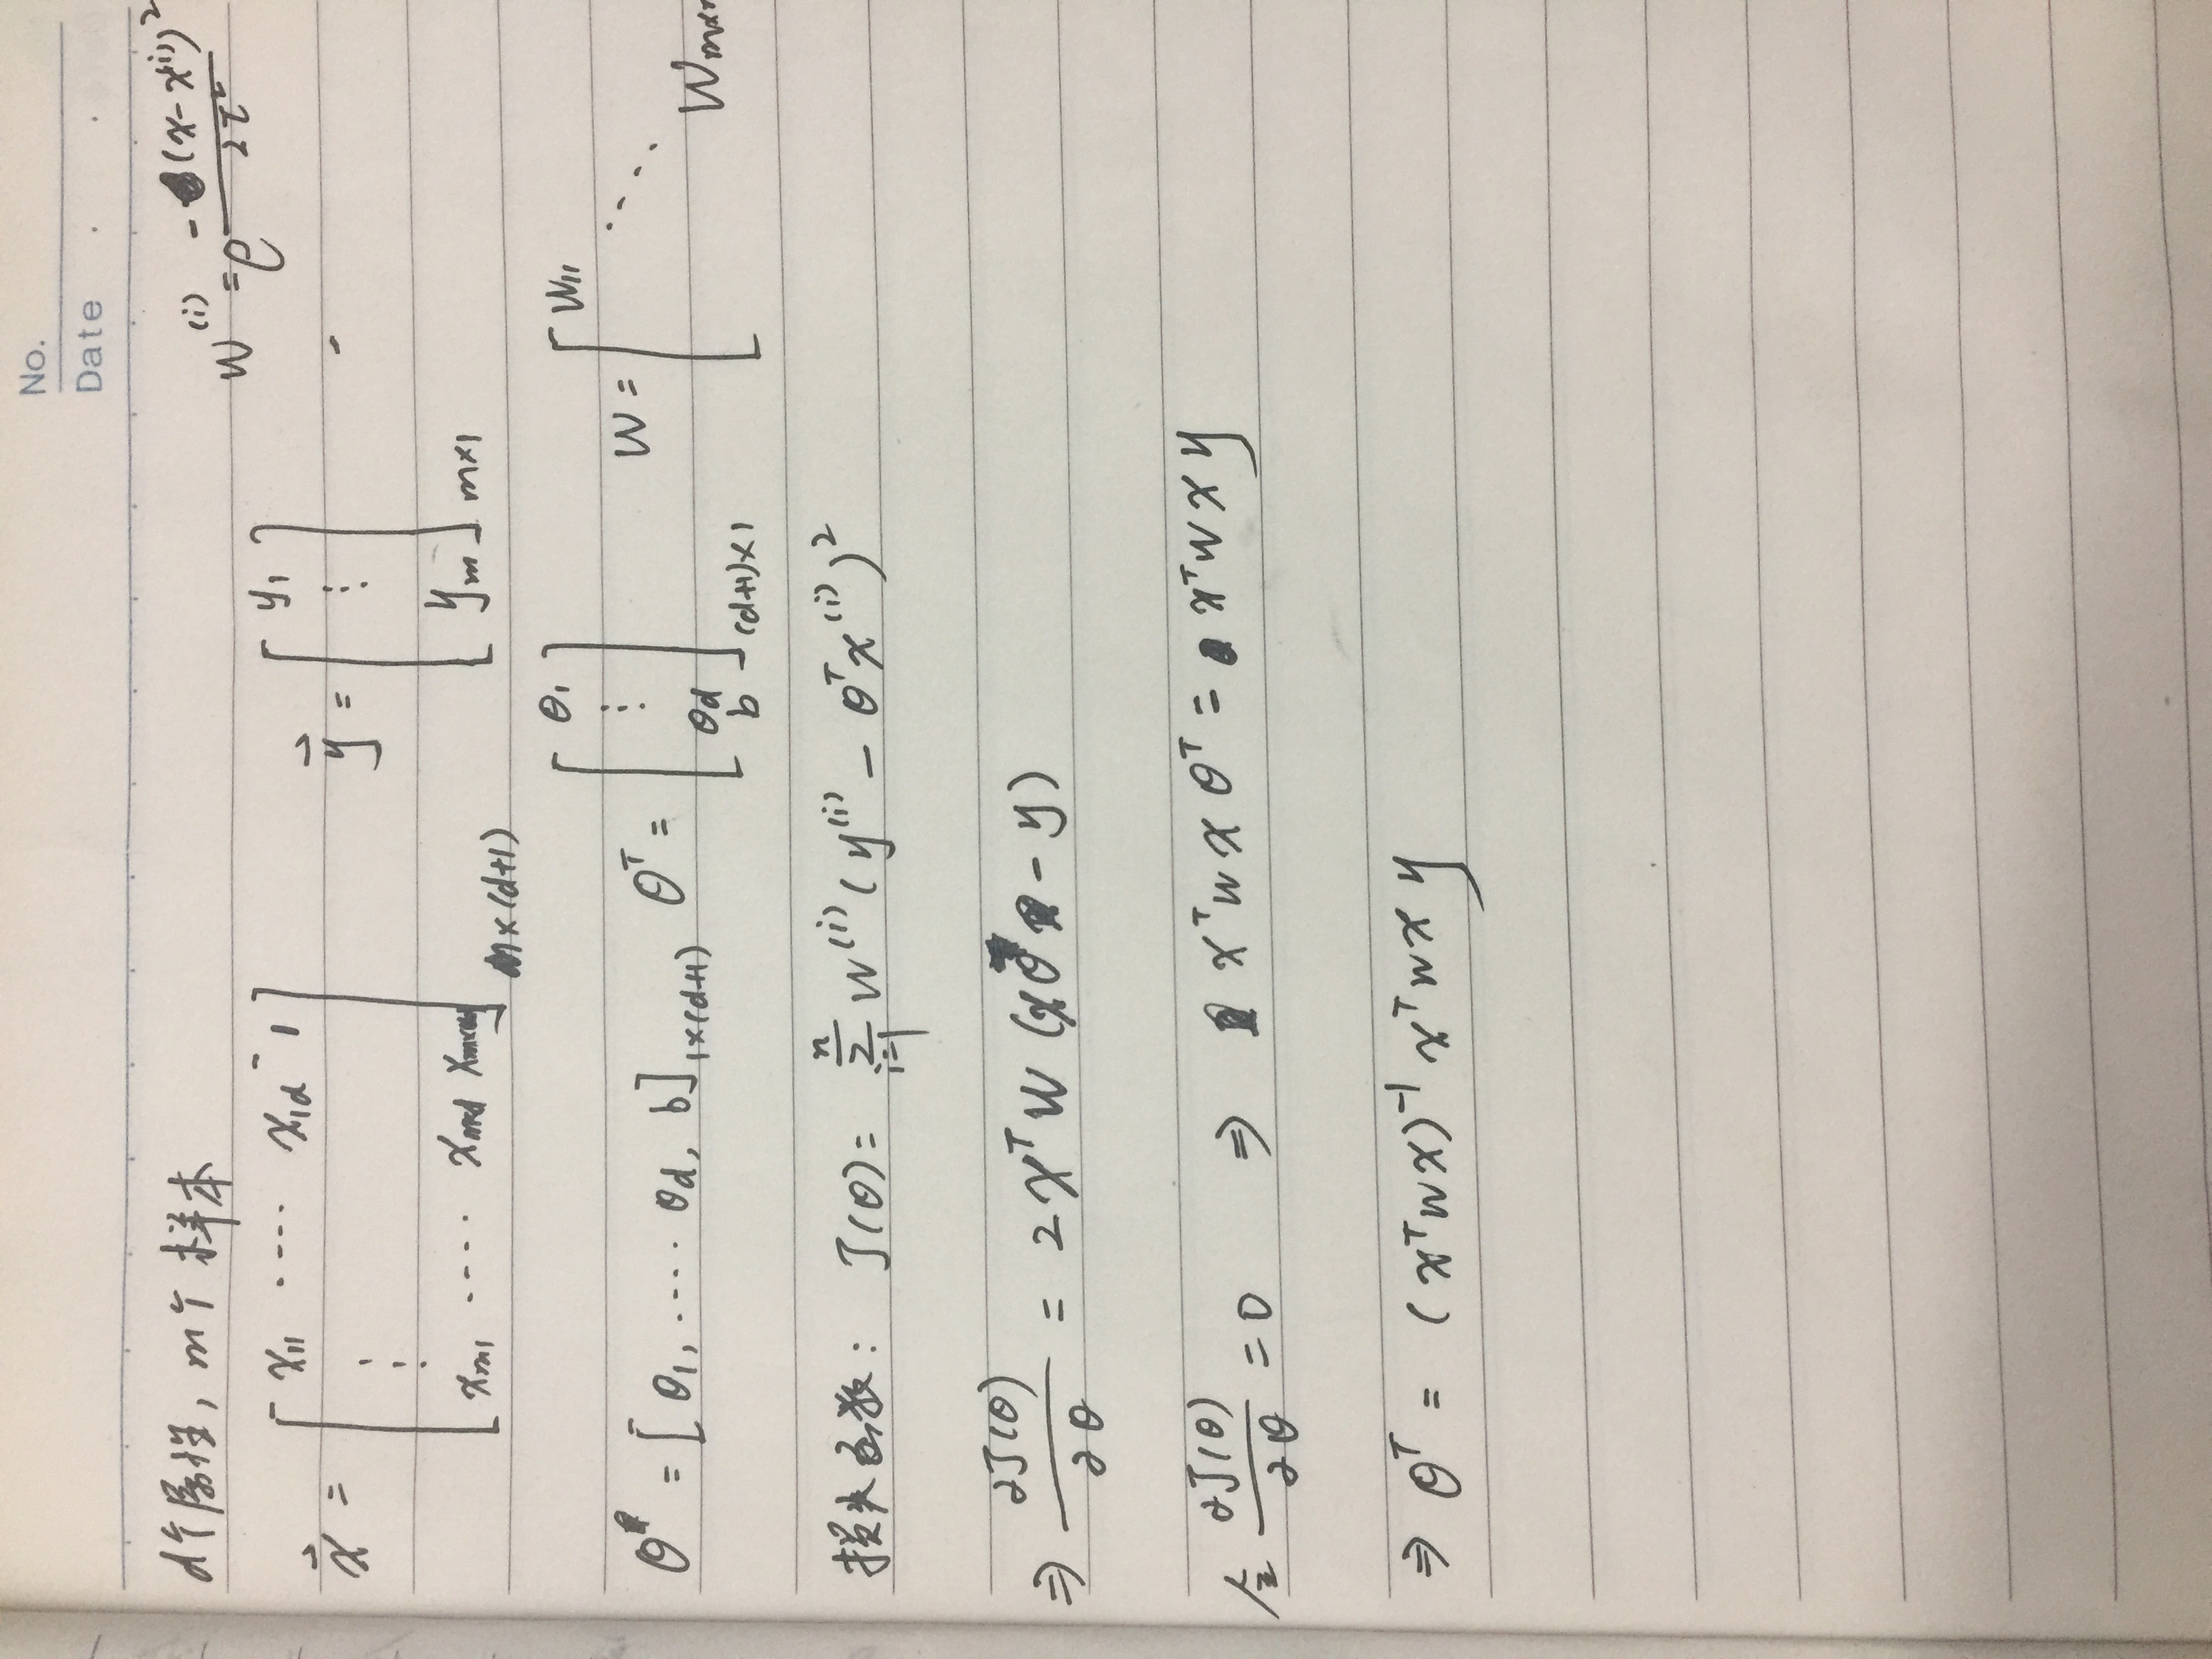 No.
Date
d个属性, m个样本
w^(i) = e^(-(x-x^(i))^2 / 2τ^2)
x⃗ = [ x11 ···· x1d 1 ⋮ xm1 ···· xmd ] m×(d+1)
y⃗ = [ y1 ⋮ ym ] m×1
θ = [ θ1, ···· θd, b ] 1×(d+1)
θ^T = [ θ1 ⋮ θd b ] (d+1)×1
W = [ W11 ⋱
损失函数: J(θ) = Σ_{i=1}^{n} w^(i) ( y^(i) - θ^T x^(i) )^2
⇒ ∂J(θ)/∂θ = 2 X^T W (xθ - y)
令 ∂J(θ)/∂θ = 0 ⇒ x^T w x θ^T = x^T w x y
⇒ θ^T = ( x^T w x )^-1 x^T w x y